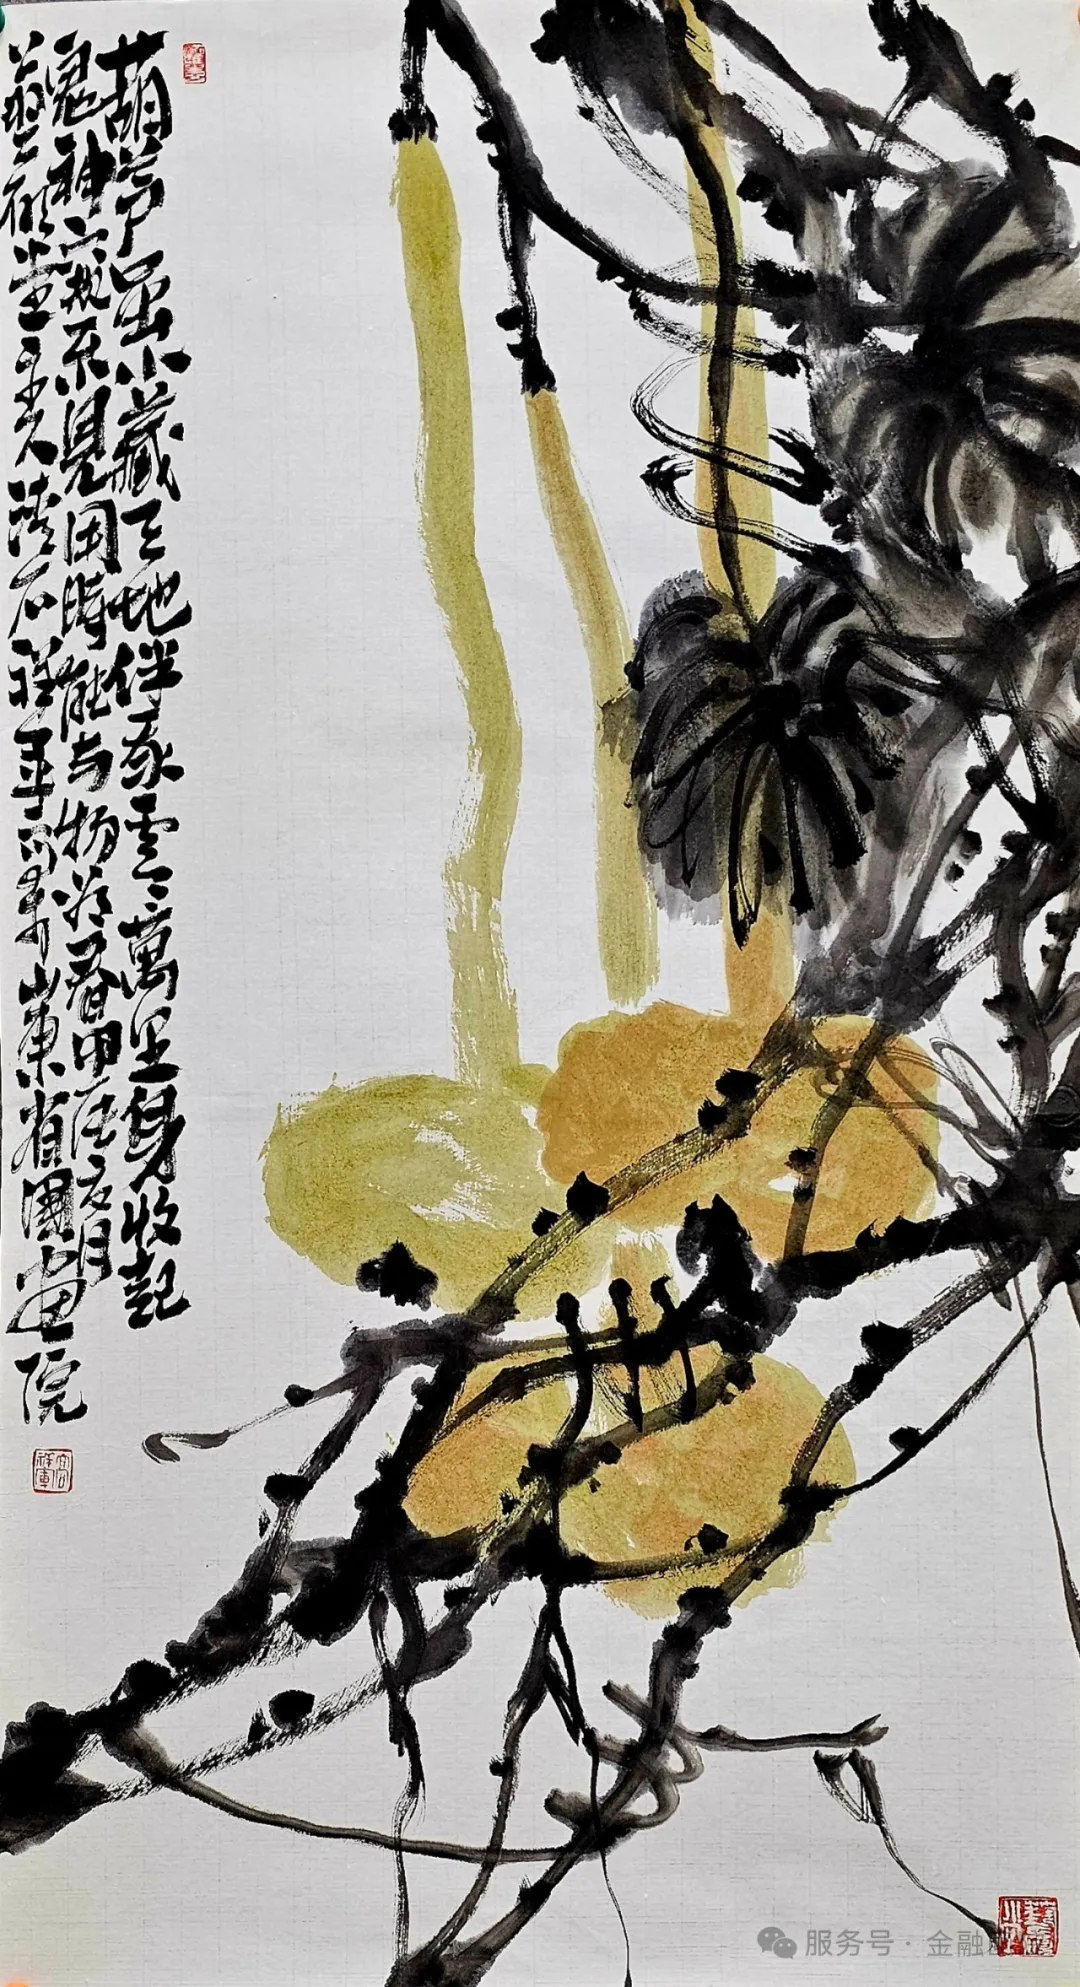 葫芦虽小藏天地伴我云云万里身收起
鬼神窥不见用时能与物为春甲辰六月
翁 草堂主人 清石祥军 山东省国画院
服务号·金融